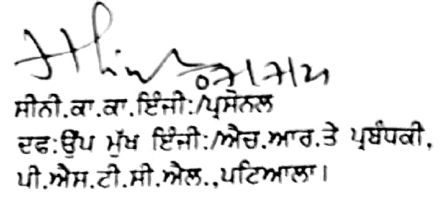 ਸੀਨੀ.ਕਾ.ਕਾ.ਇੰਜੀ:/ਪ੍ਰਸੋਨਲ
ਦਫ:ਉੱਪ ਮੁੱਖ ਇੰਜੀ:/ਐਚ.ਆਰ.ਤੇ ਪ੍ਰਬੰਧਕੀ,
ਪੀ.ਐਸ.ਟੀ.ਸੀ.ਐਲ.,ਪਟਿਆਲਾ।